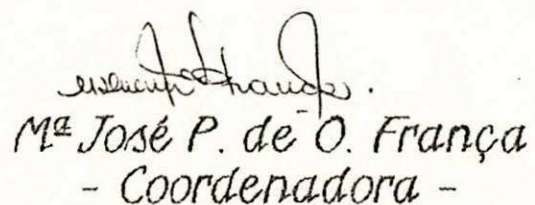 Mª José P. de O. França
- Coordenadora -